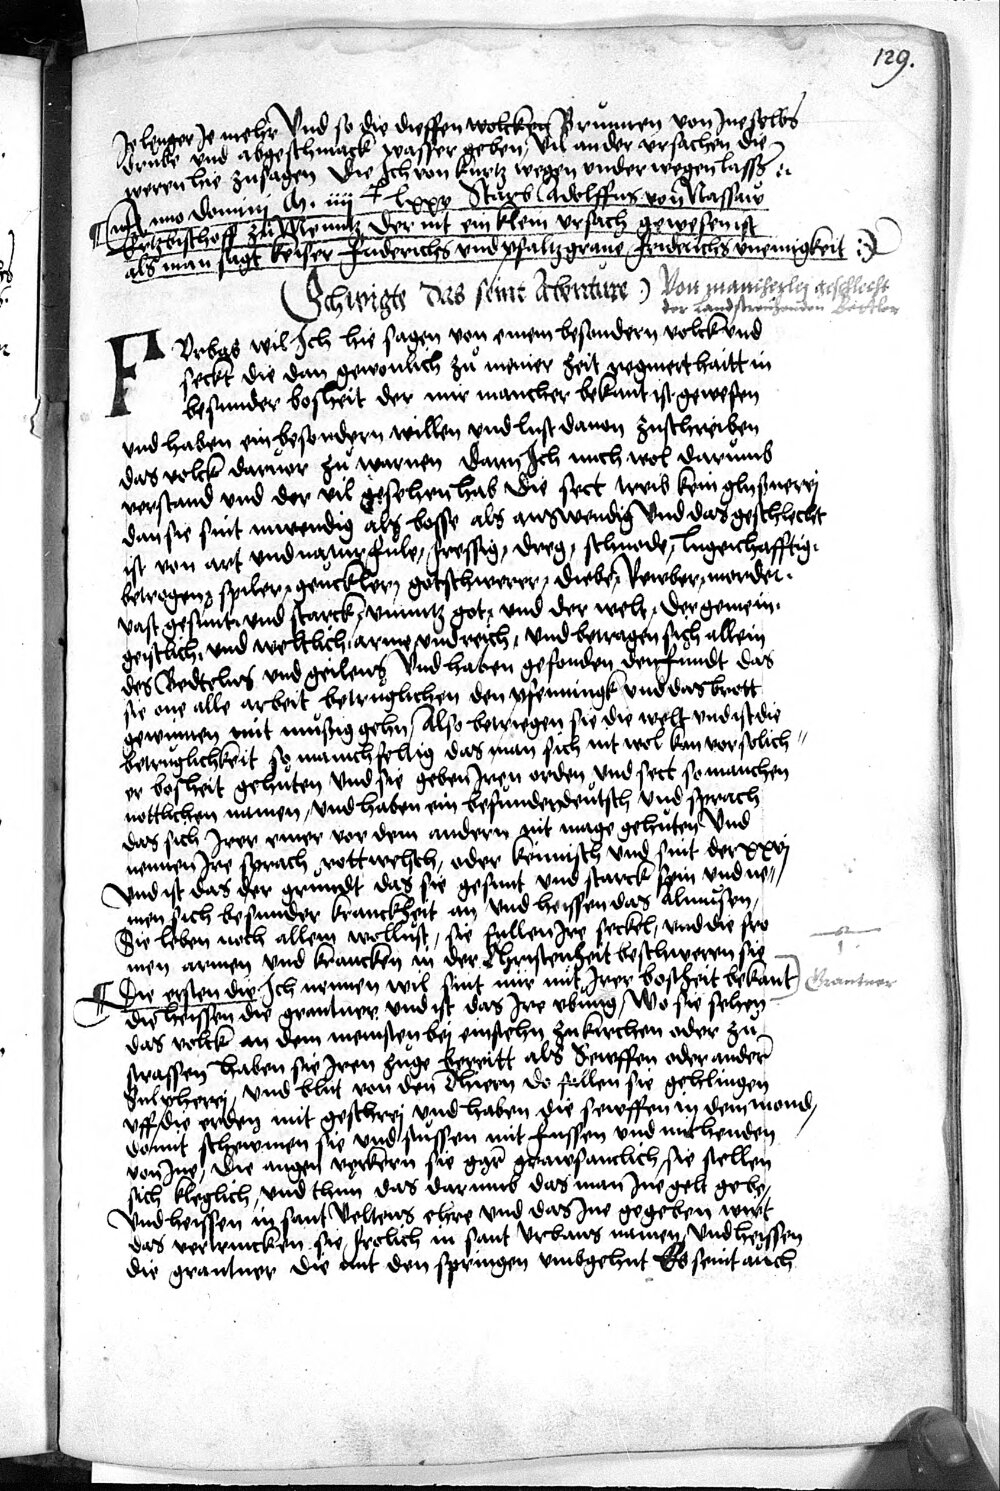 129.
Je lenger Je mehr Und so die dieffen wolcken Brunnen von Ine selbs
drube und abgeschmack wasser geben, Vil ander ursachen die
weren hie zusagen Die Ich von kurtz wegen underwegen lassz
Anno domini M. iiii C lxxv Starb Adolffus von Nassaw
Ertzbischoff zu Mentz Der nit ein klein ursach gewesen ist
als man sagt keiser Friderichs und pfaltzgrave Friderichs uneinigkeit
Schweigte das seine Abenture
Von mancherley geschlecht
der Landstreichenden Bettler
FUrbas wil Ich hie sagen von einem besondern volck und
seckt die dan gewonlich zu meiner zeit regniert haitt in
besunder bosheit der mir mancher bekant ist gewesen
und haben ein besondern willen und lust davon zuschreiben
das volck darvor zu warnen Dann Ich mich wol darumb
verstand und der vil gesehen hab Die sect treib kein glyßnerej
dan sie sint inwendig als bosse als auswendig Und das geschlecht
ist von art und natur fule, fressig, dreg, schnode, lugenhafftig.
betrogen, spiler, geuckler, gotschwerer, diebe, Rewber, morder.
vast gesunt, und starck, unnutz got, und der welt, der gemein.
geistlich, und weltlich, arme und reich, und betragen sich allein
des Bedtelns und geilens Und haben gefonden den fundt das
sie one alle arbeit betruglichen den pfenningk und das brott
gewinnen mit mussig gehn, Also betriegen sie die welt und ist die
betruglichkeit so manichfeltig das man sich nit wol kan vor solich
er bosheit gehuten Und sie geben Iren orden und sect so manchen
nottlichen namen, und haben ein besunder deutsch und sprach
das sich Irer einer vor dem andern nit mage gehuten Und
nennen Ire sprach rottwelsch, oder keimisch und sint der xxvj
Und ist das der grundt das sie gesunt und starck sein und ne
men sich besunder kranckheit an und heissen das Almusen,
Sie leben noch allem wollust, sie fullen Ire seckel, und die fro
men armen und krancken in der Christenheit beschweren sie
1.
Die ersten die Ich nennen wil sint mir mit Irer bosheit bekant
Grantner
die heissen die grantner und ist das Ire ubung, Wo sie sehen
das volck an dem meinsten bei einstehn zu kirchen oder zu
strassen haben sie Iren zuge bereitt als Sewffen oder ander
Pulpherej, und blut von den Thiern do fallen sie gehlingen
uff die erden mit geschrei und haben die sewffen in dem mond,
domit schewmen sie und stussen mit fussen und mit henden
von Ine, Die augen verkern sie gar grawsamlich, sie stellen
sich kleglich, und thun das darumb das man Ine gelt gebe,
Und heissen in sant Veltens ehre und das Ine gegeben wirt
das vertrincken sie frolich in sant Urbans namen, Und heissen
die grantner die mit den springen umbgehnt Es seint auch